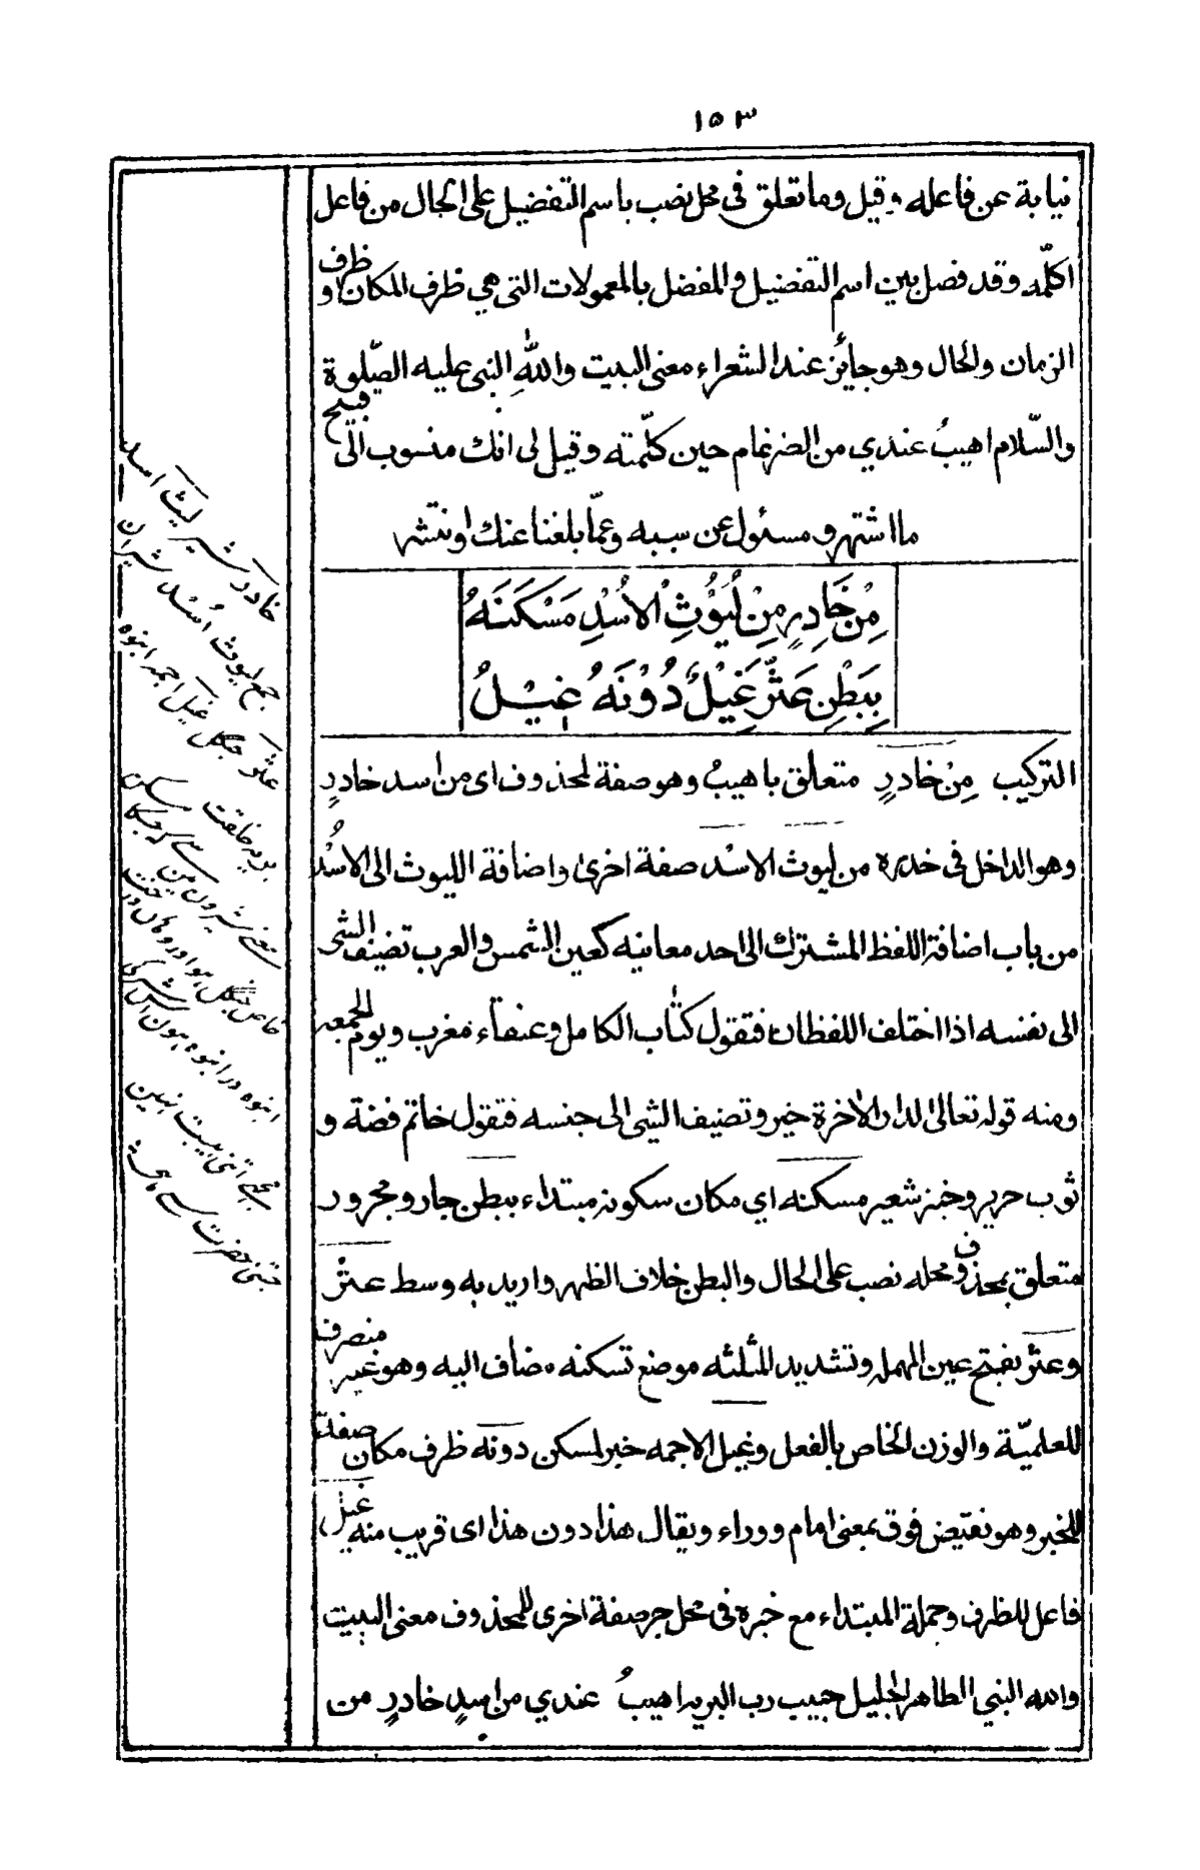 ١٥٣
نيابة عن فاعله وقيل وما تعلق فى محل نصب باسم التفضيل على الحال من فاعل
اكلّمه وقد فصل بين اسم التفضيل والمفضل بالمعمولات التى هي ظرف المكان او ظرف
الزمان والحال وهو جائز عند الشعراء معنى البيت والله النبى عليه الصّلوة
والسّلام اهيبُ عندي من الضرغام حين كلّمته وقيل لى انك منسوب الى قبيح
ما اشتهر ومسئول عن سببه وعمّا بلغنا عنك وانتشر
مِنْ خَادِرٍ مِنْ لُيُوْثِ الْاُسْدِ مَسْكَنَهُ
بِبَطْنِ عَثَّرَ غِيْلٌ دُوْنَهُ غِيْلُ
التركيب مِنْ خادرٍ متعلق باهيبُ وهو صفة لمحذوف اى من اسد خادرٍ
وهو الداخل فى خدره من ليوث الاسْد صفة اخرىٰ واضافة الليوث الى الاسُدْ
من باب اضافة اللفظ المشترك الى احد معانيه كعين الشمس والعرب تضيف الشى
الى نفسه اذا اختلف اللفظان فتقول كتٰاب الكامل وعنقاء مغرب ويوم الجمعه
ومنه قوله تعالىٰ الدار الاٰخرة خير وتضيف الشى الى جنسه فتقول خاتم فضة و
ثوب حرير وخبز شعير مسكنه اي مكان سكونه مبتداء ببطن جار ومجرور
متعلق بمحذوف ومحله نصب على الحال والبطن خلاف الظهر واريد به وسط عثرْ
وعثرْ بفتح عين المهمله وتشديد المثلثه موضع تسكنه مضاف اليه وهو غير منصرف
للعلميّة والوزن الخاص بالفعل وغيل الاجمه خبر لمسكن دونه ظرف مكان صفة
للخبر وهو نقيض فوق بمعنى امام ووراء ويقال هذا دون هذا اى قريب منه غيل
فاعل للظرف وجملة المبتداء مع خبره فى محل جر صفة اخرى للمحذوف معنى البيت
والله النبي الطاهر الجليل حبيب رب البريه اهيبُ عندي من اسدٍ خادرٍ من
خادر شیر لیث اسد
جمع لیوث اُسْد شیران
عثر جنگل غیل اجمہ انبوہ